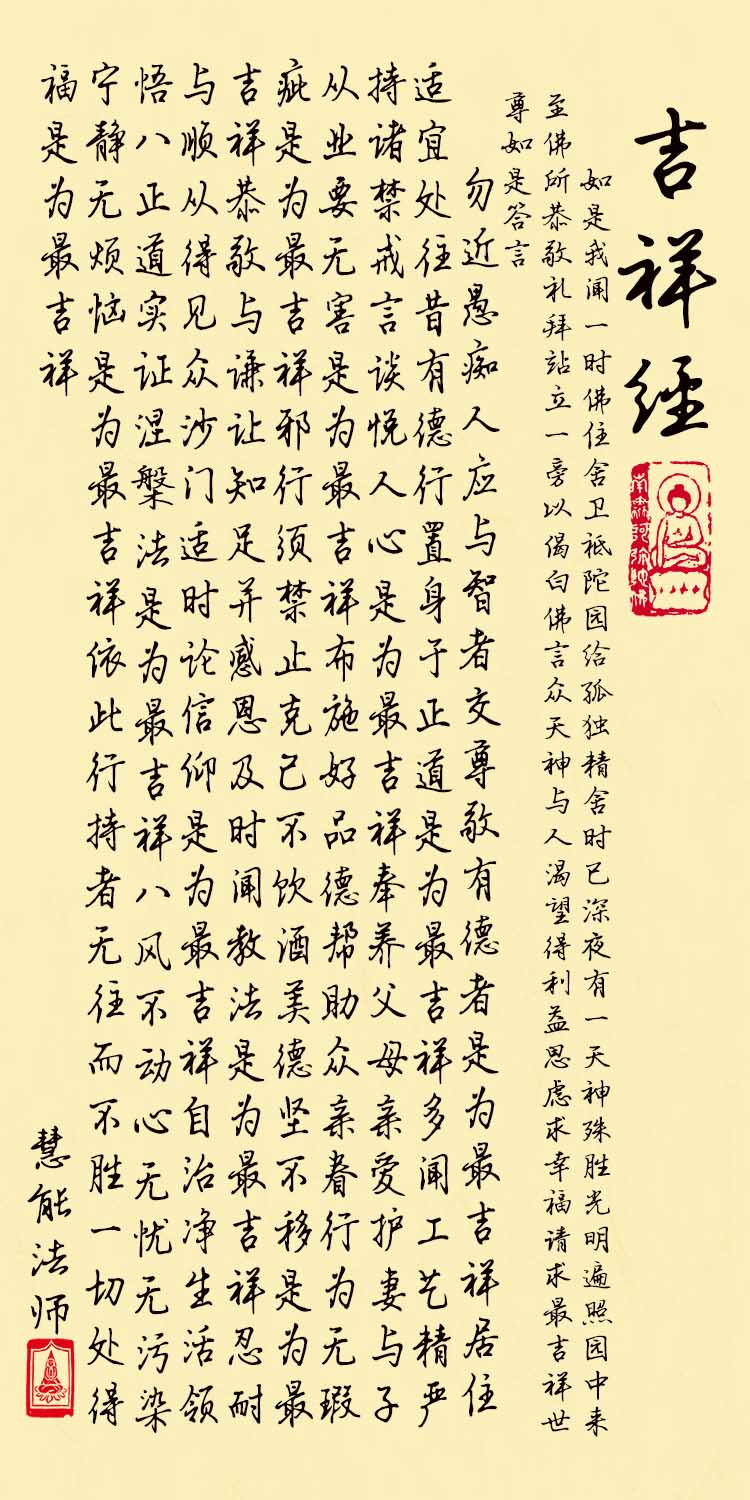 吉祥经
如是我闻一时佛住舍卫祗陀园给孤独精舍时已深夜有一天神殊胜光明遍照园中来
至佛所恭敬礼拜站立一旁以偈白佛言众天神与人渴望得利益思虑求幸福请求最吉祥世
尊如是答言
勿近愚痴人应与智者交尊敬有德者是为最吉祥居住
适宜处往昔有德行置身于正道是为最吉祥多闻工艺精严
持诸禁戒言谈悦人心是为最吉祥奉养父母亲爱护妻与子
从业要无害是为最吉祥布施好品德帮助众亲眷行为无瑕
疵是为最吉祥邪行须禁止克己不饮酒美德坚不移是为最
吉祥恭敬与谦让知足并感恩及时闻教法是为最吉祥忍耐
与顺从得见众沙门适时论信仰是为最吉祥自治净生活领
悟八正道实证涅槃法是为最吉祥八风不动心无忧无污染
宁静无烦恼是为最吉祥依此行持者无往而不胜一切处得
福是为最吉祥
慧能法师